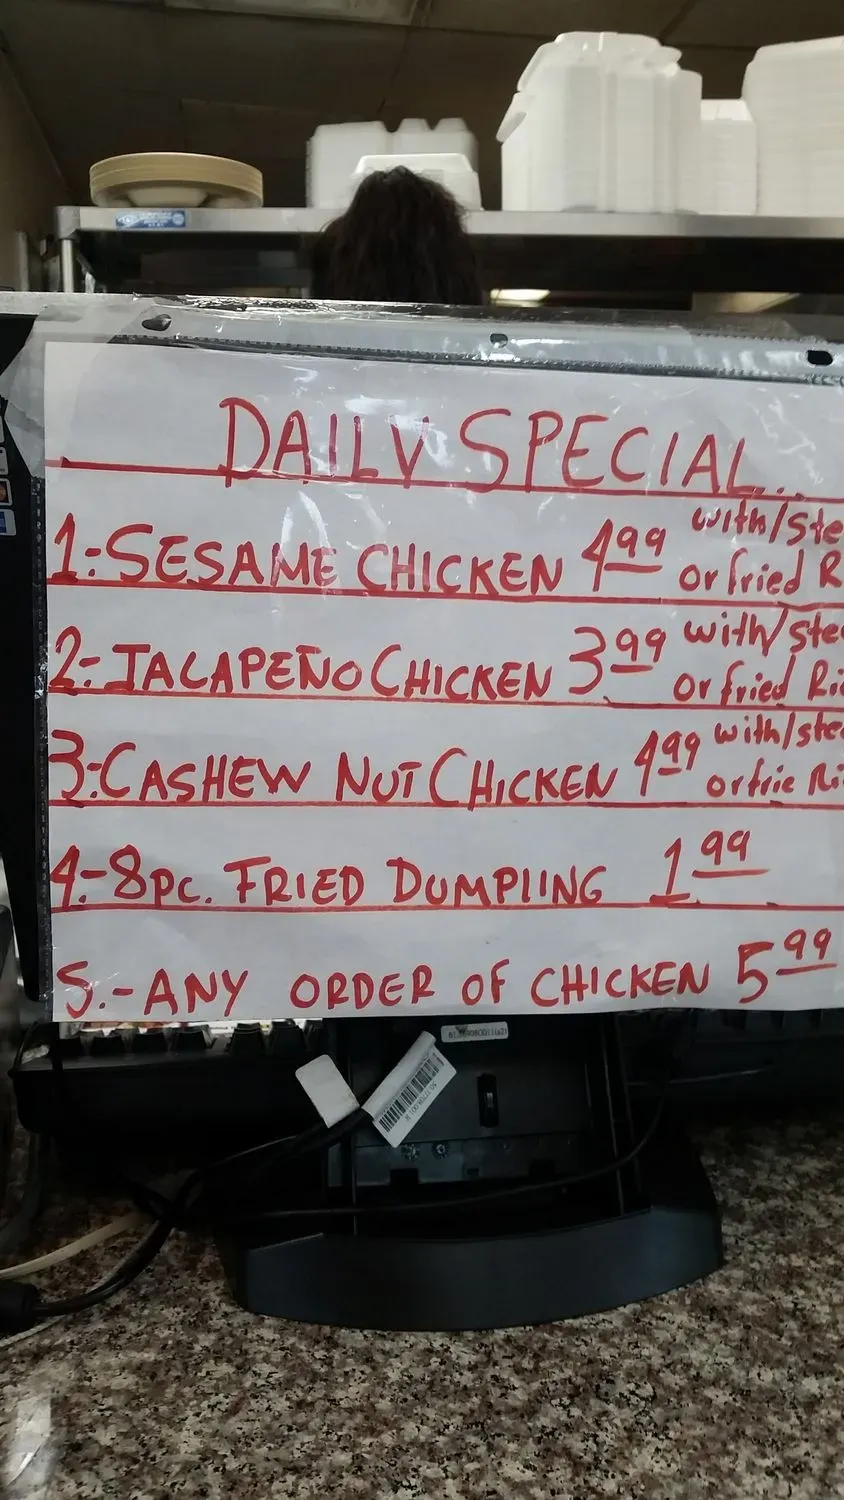 DAILY SPECIAL...
1:-SESAME CHICKEN 4.99 with/ste
or fried R
2:-JALAPEÑO CHICKEN 3.99 with/ste
or fried Ri
3:-CASHEW NUT CHICKEN 4.99 with/ste
or frie Ri
4.-8pc. FRIED DUMPLING 1.99
5.-ANY ORDER OF CHICKEN 5.99